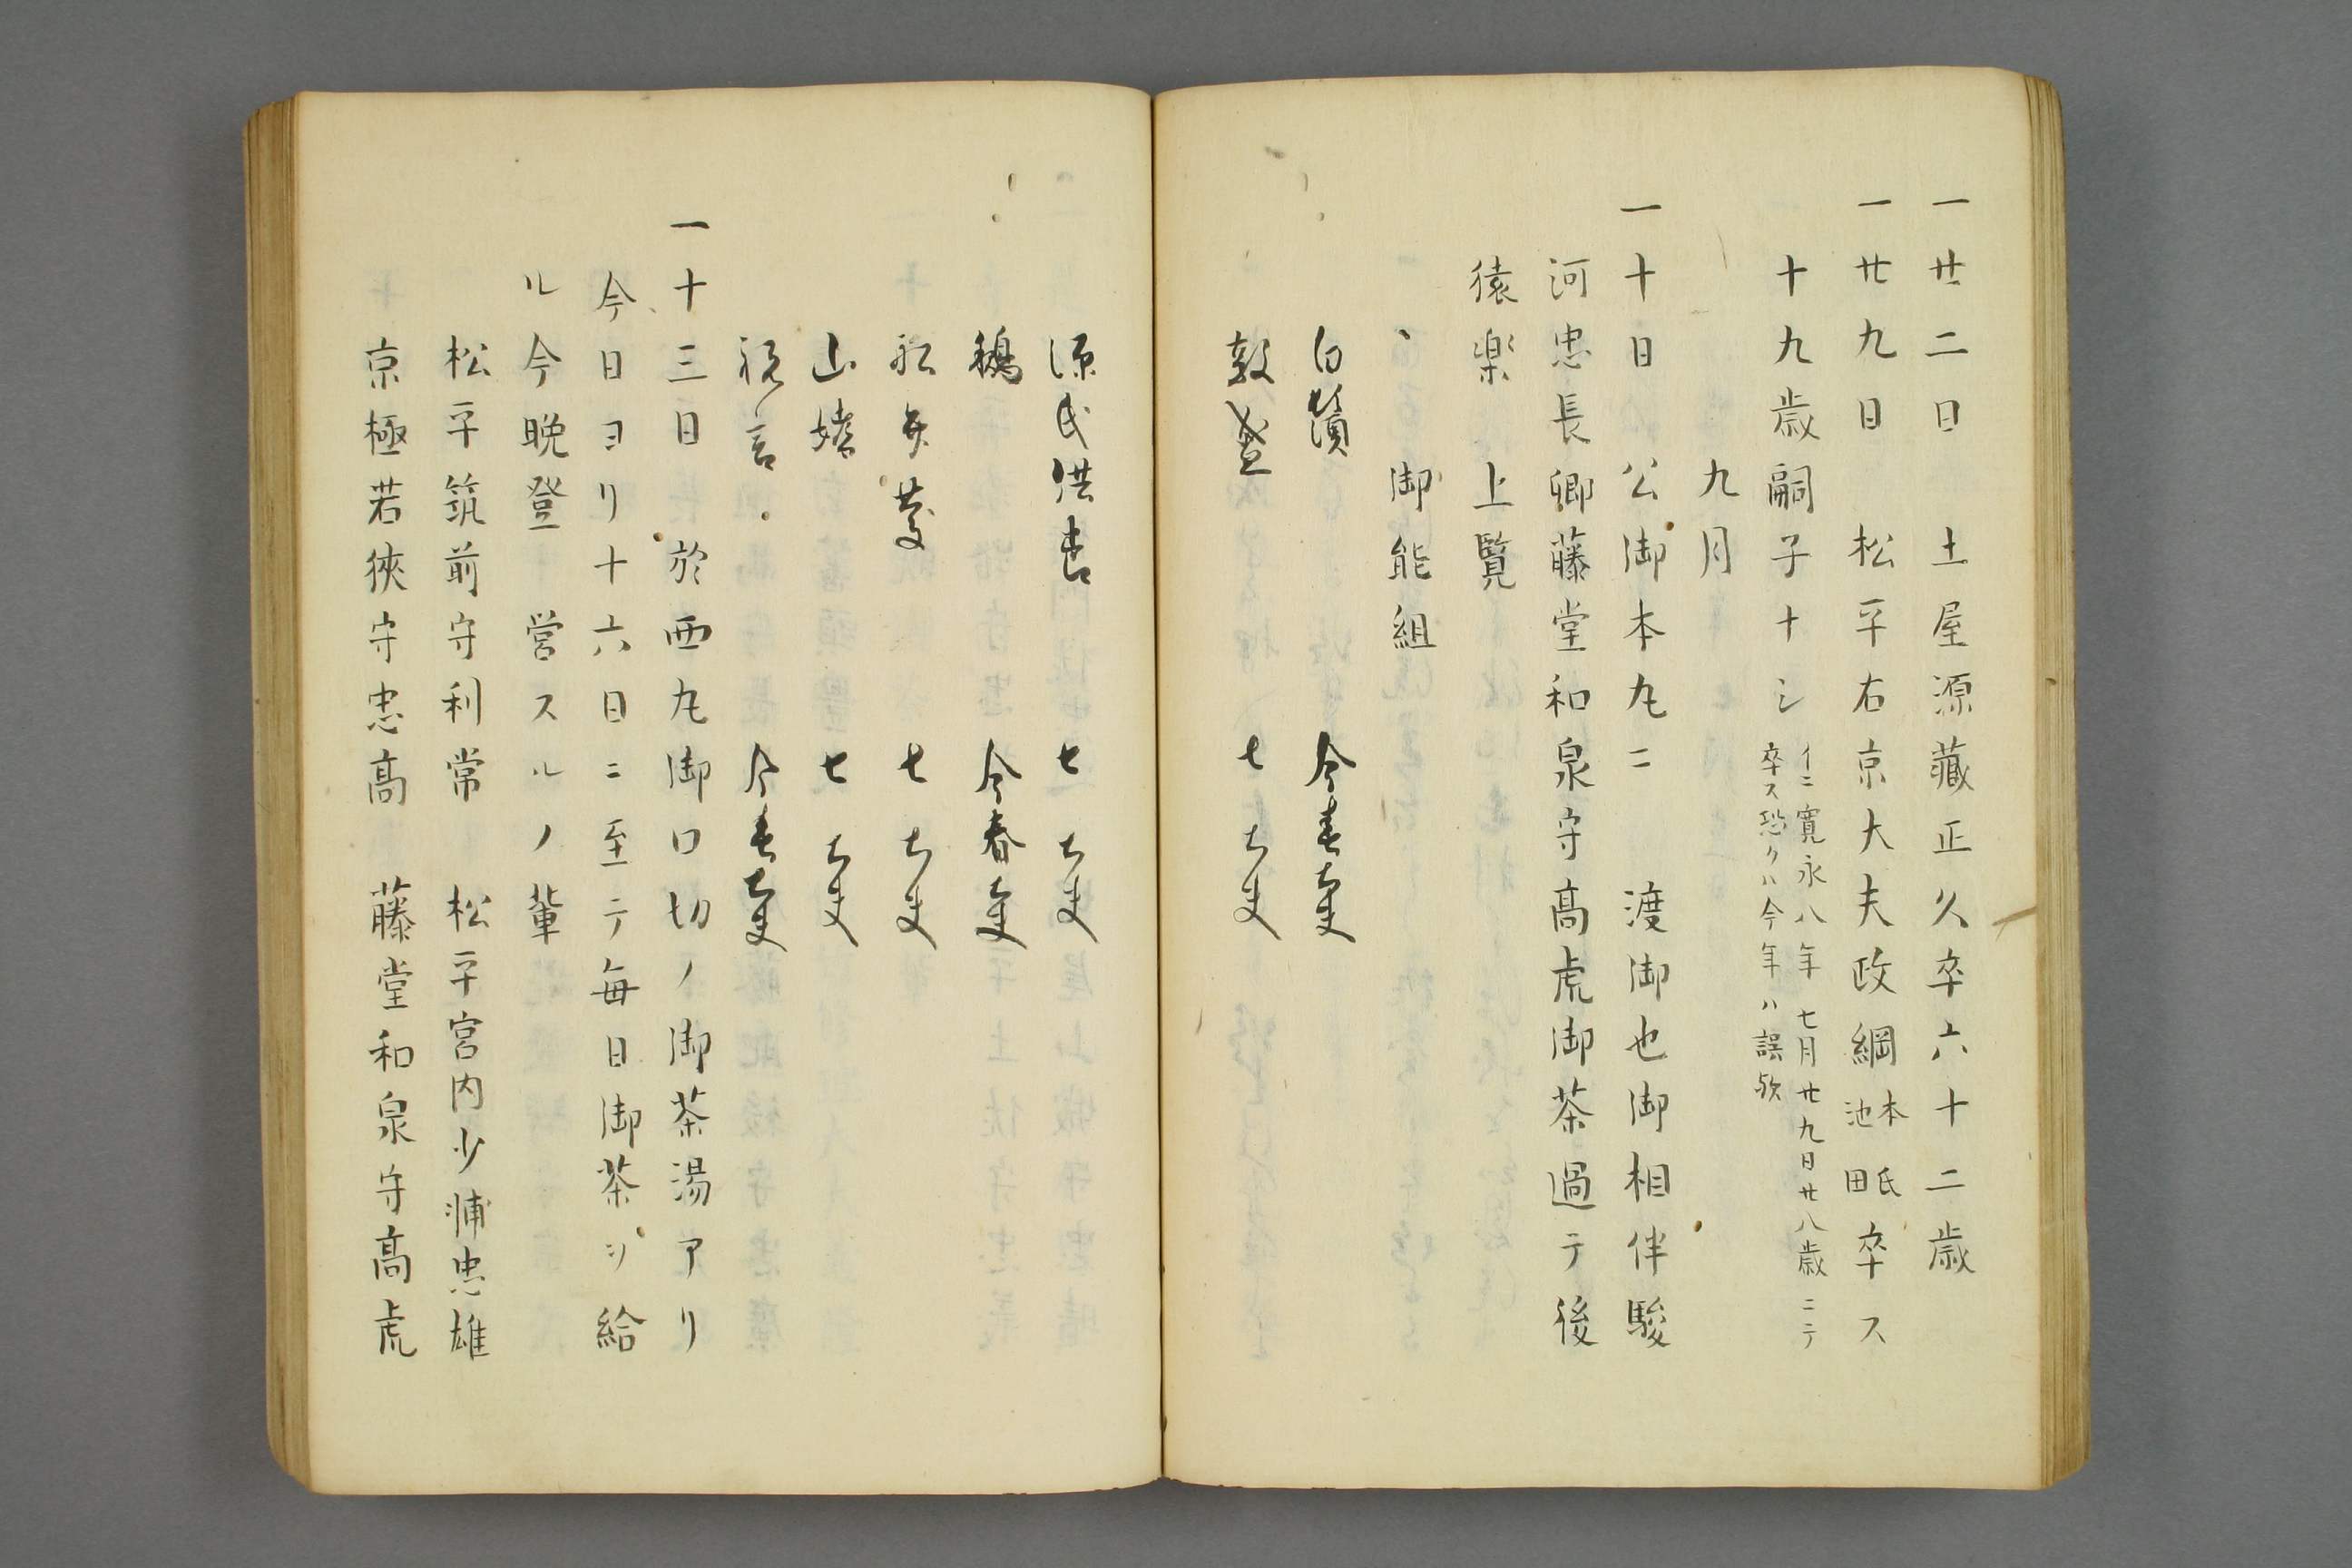 一廿二日　土屋源藏正久卒六十二歳
一廿九日　松平右京大夫政綱本氏池田卒ス
十九歳嗣子ナシ
イニ寛永八年七月廿九日廿八歳ニテ
卒ス恐クハ今年ハ誤歟
九月
一十日　公御本丸ニ　渡御也御相伴駿
河忠長卿藤堂和泉守高虎御茶過テ後
猿楽　上覧
御能組
白鬚　今春大夫
敦盛　七大夫
源氏供養　七大夫
鵜　今春大夫
船弁慶　七大夫
山姥　七大夫
祝言　今春大夫
一十三日　於西丸御口切ノ御茶湯アリ
今日ヨリ十六日ニ至テ毎日御茶ヲ給
ル今晩登　営スルノ輩
松平筑前守利常　松平宮内少輔忠雄
京極若狭守忠高　藤堂和泉守高虎